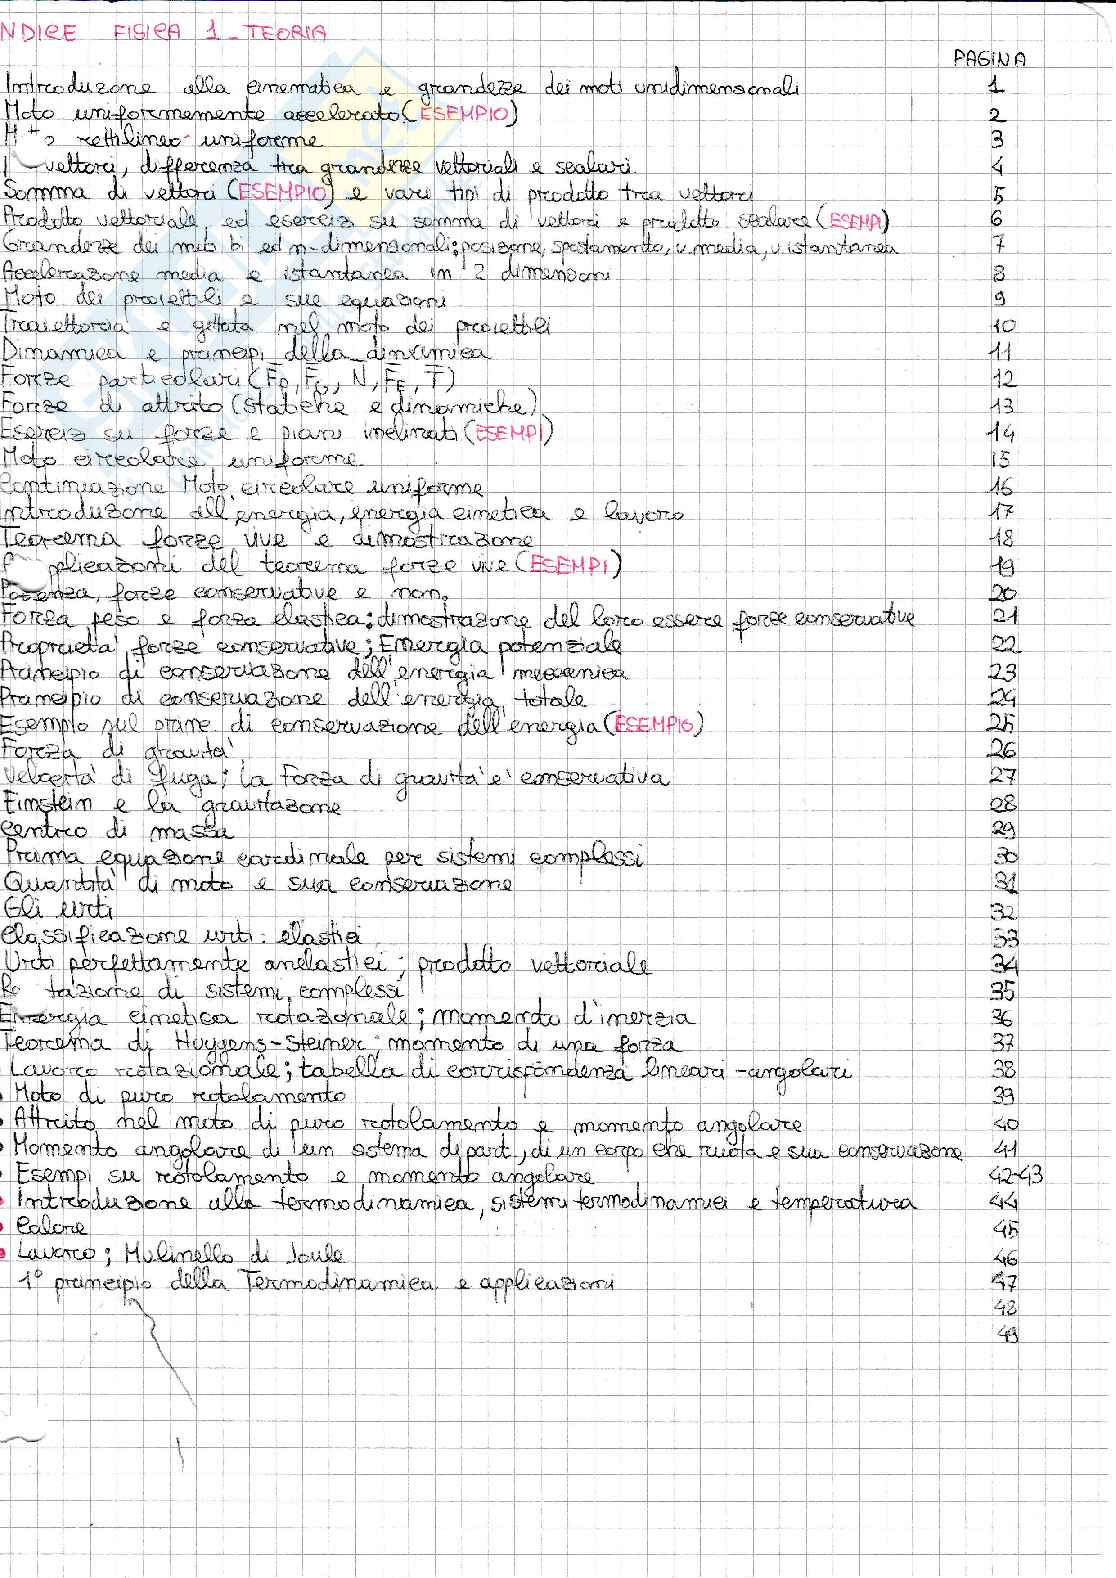 NDICE FISICA 1_TEORIA
PAGINA
Introduzione alla cinematica e grandezze dei moti unidimensionali 1
Moto uniformemente accelerato (ESEMPIO) 2
rettilineo uniforme 3
vettori, differenza tra grandezze vettoriali e scalari 4
Somma di vettori (ESEMPIO) e vari tipi di prodotto tra vettori 5
Prodotto vettoriale, ed esercizi su somma di vettori e prodotto scalare (ESEMPI) 6
Grandezze dei moti bi ed n-dimensionali: posizione, spostamento, v. media, v istantanea 7
Accelerazione media e istantanea in 2 dimensioni 8
Moto dei proiettili e sue equazioni 9
Traiettoria e gittata nel moto dei proiettili 10
Dinamica e principi della dinamica 11
Forze particolari (F̅p, F̅G, N̅, F̅E, T̅) 12
Forze di attrito (statiche e dinamiche) 13
Esercizi su forze e piani inclinati (ESEMPI) 14
Moto circolare uniforme 15
Continuazione Moto circolare uniforme 16
Introduzione all'energia, energia cinetica e lavoro 17
Teorema forze vive e dimostrazione 18
plicazioni del teorema forze vive (ESEMPI) 19
Potenza, forze conservative e non. 20
Forza peso e forza elastica: dimostrazione del loro essere forze conservative 21
Proprietà forze conservative; Energia potenziale 22
Principio di conservazione dell'energia meccanica 23
Principio di conservazione dell'energia totale 24
Esempio sul piane di conservazione dell'energia (ESEMPIO) 25
Forza di gravità 26
Velocità di fuga; la Forza di gravità è conservativa 27
Einstein e la gravitazione 28
Centro di massa 29
Prima equazione cardinale per sistemi complessi 30
Quantità di moto e sua conservazione 31
Gli urti 32
Classificazione urti: elastici 33
Urti perfettamente anelastici; prodotto vettoriale 34
Ro tazione di sistemi complessi 35
Energia cinetica rotazionale; momento d'inerzia 36
Teorema di Huygens-Steiner; momento di una forza 37
Lavoro rotazionale; tabella di corrispondenza lineari-angolari 38
• Moto di puro rotolamento 39
• Attrito nel moto di puro rotolamento e momento angolare 40
• Momento angolare di un sistema di part., di un corpo che ruota e sua conservazione 41
• Esempi su rotolamento e momento angolare 42-43
• Introduzione alla termodinamica, sistemi termodinamici e temperatura 44
• Calore 45
• Lavoro; Mulinello di Joule 46
1° principio della Termodinamica e applicazioni 47
48
49